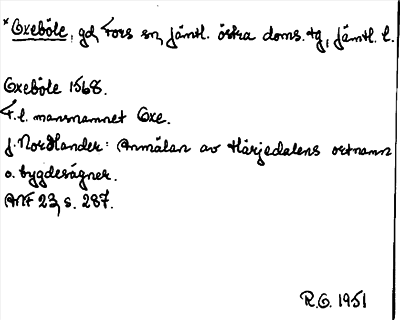 *Oxeböle, gd, Fors sn, jämtl. östra doms. tg, jämtl. l.
Oxeböle 1568.
F.l. mansnamnet Oxe.
J. Nordlander: Anmälan av Härjedalens ortnamn
o. bygdesägner.
ANF 23, s. 287.
R.O. 1951